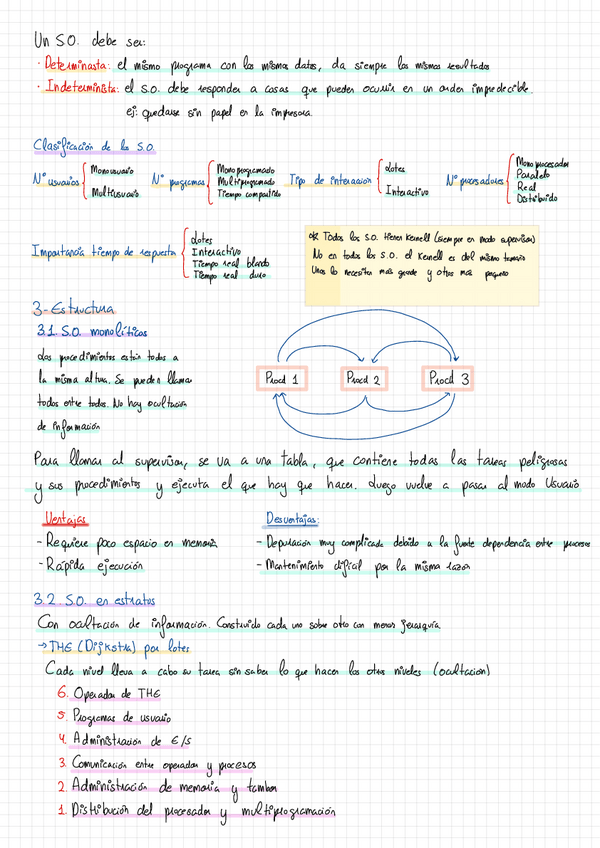 Un S.O. debe ser:
· Determinista: el mismo programa con los mismos datos, da siempre los mismos resultados
· Indeterminista: el S.O. debe responder a cosas que pueden ocurrir en un orden impredecible.
ej: quedarse sin papel en la impresora
Clasificación de los S.O.
Nº usuarios { Monousuario
Multiusuario
Nº programas { Monoprogramado
Multiprogramado
Tiempo compartido
Tipo de interacción { Lotes
Interactivo
Nº procesadores { Monoprocesador
Paralelo
Real
Distribuido
Importancia tiempo de respuesta { Lotes
Interactivo
Tiempo real blando
Tiempo real duro
Todos los S.O. tienen Kernell (siempre en modo supervisor)
No en todos los S.O. el Kernell es del mismo tamaño
Unos lo necesitan más grande y otros más pequeño
3- Estructura
3.1. S.O. monolíticos
Los procedimientos están todos a
la misma altura. Se pueden llamar
todos entre todos. No hay ocultación
de información
Proced 1 Proced 2 Proced 3
Para llamar al supervisor, se va a una tabla, que contiene todas las tareas peligrosas
y sus procedimientos y ejecuta el que hay que hacer. Luego vuelve a pasar al modo Usuario
Ventajas
- Requiere poco espacio en memoria
- Rápida ejecución
Desventajas:
- Depuración muy complicada debido a la fuerte dependencia entre procesos
- Mantenimiento difícil por la misma razón
3.2. S.O. en estratos
Con ocultación de información. Construido cada uno sobre otro con menor jerarquía
→ THE (Dijkstra) por lotes
Cada nivel lleva a cabo su tarea sin saber lo que hacen los otros niveles (ocultación)
6. Operador de THE
5. Programas de usuario
4. Administración de E/S
3. Comunicación entre operador y procesos
2. Administración de memoria y tambor
1. Distribución del procesador y multiprogramación